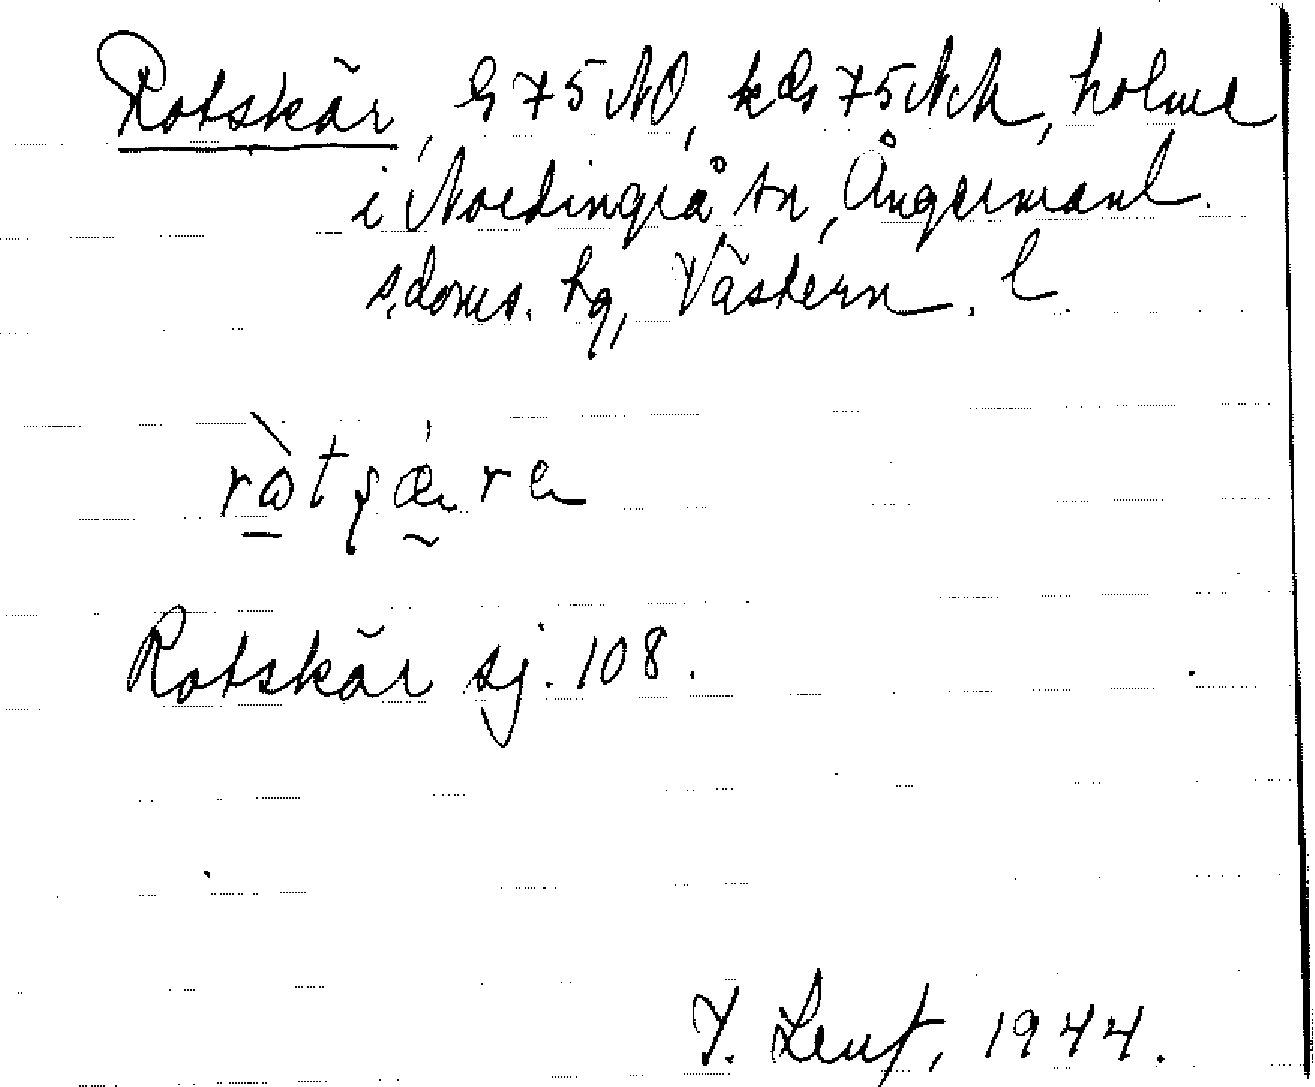 Rotskär, G 75 NO, kds 75 NM, holme
i Nordingrå sn, Ångermanl.
s. doms. hg, Västern. l.
ròtʂǽra
Rotskär sj. 108.
Y. Leuf, 1944.